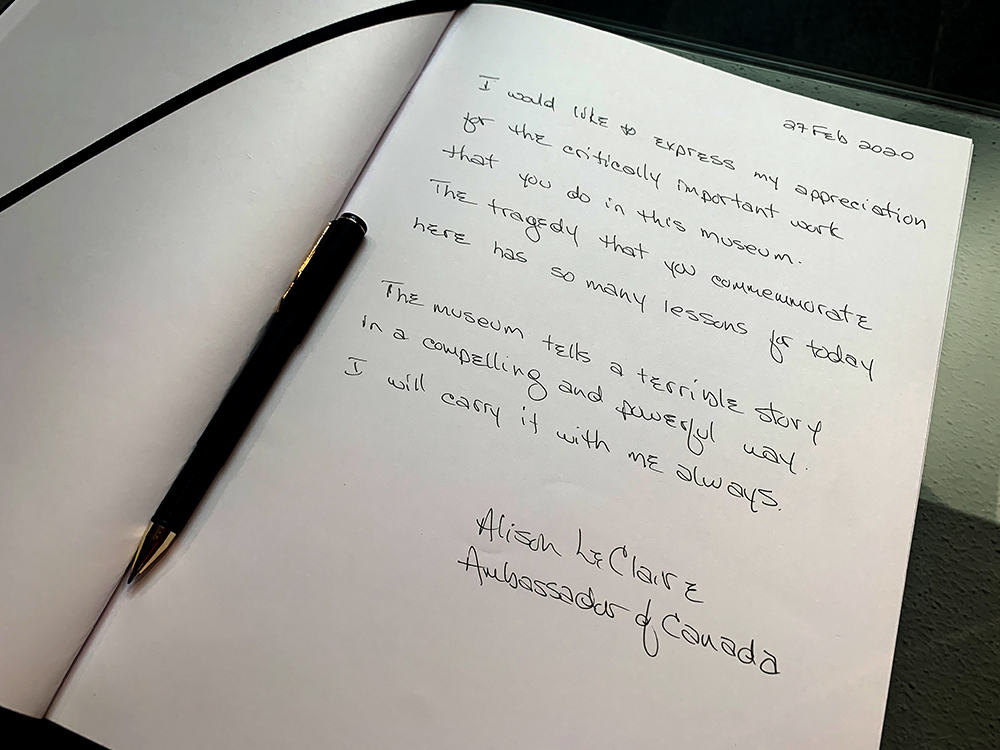 27 Feb 2020
I would like to express my appreciation
for the critically important work
that you do in this museum.
The tragedy that you commemmorate
here has so many lessons for today
The museum tells a terrible story
in a compelling and powerful way.
I will carry it with me always.
Alison LeClaire
Ambassador of Canada